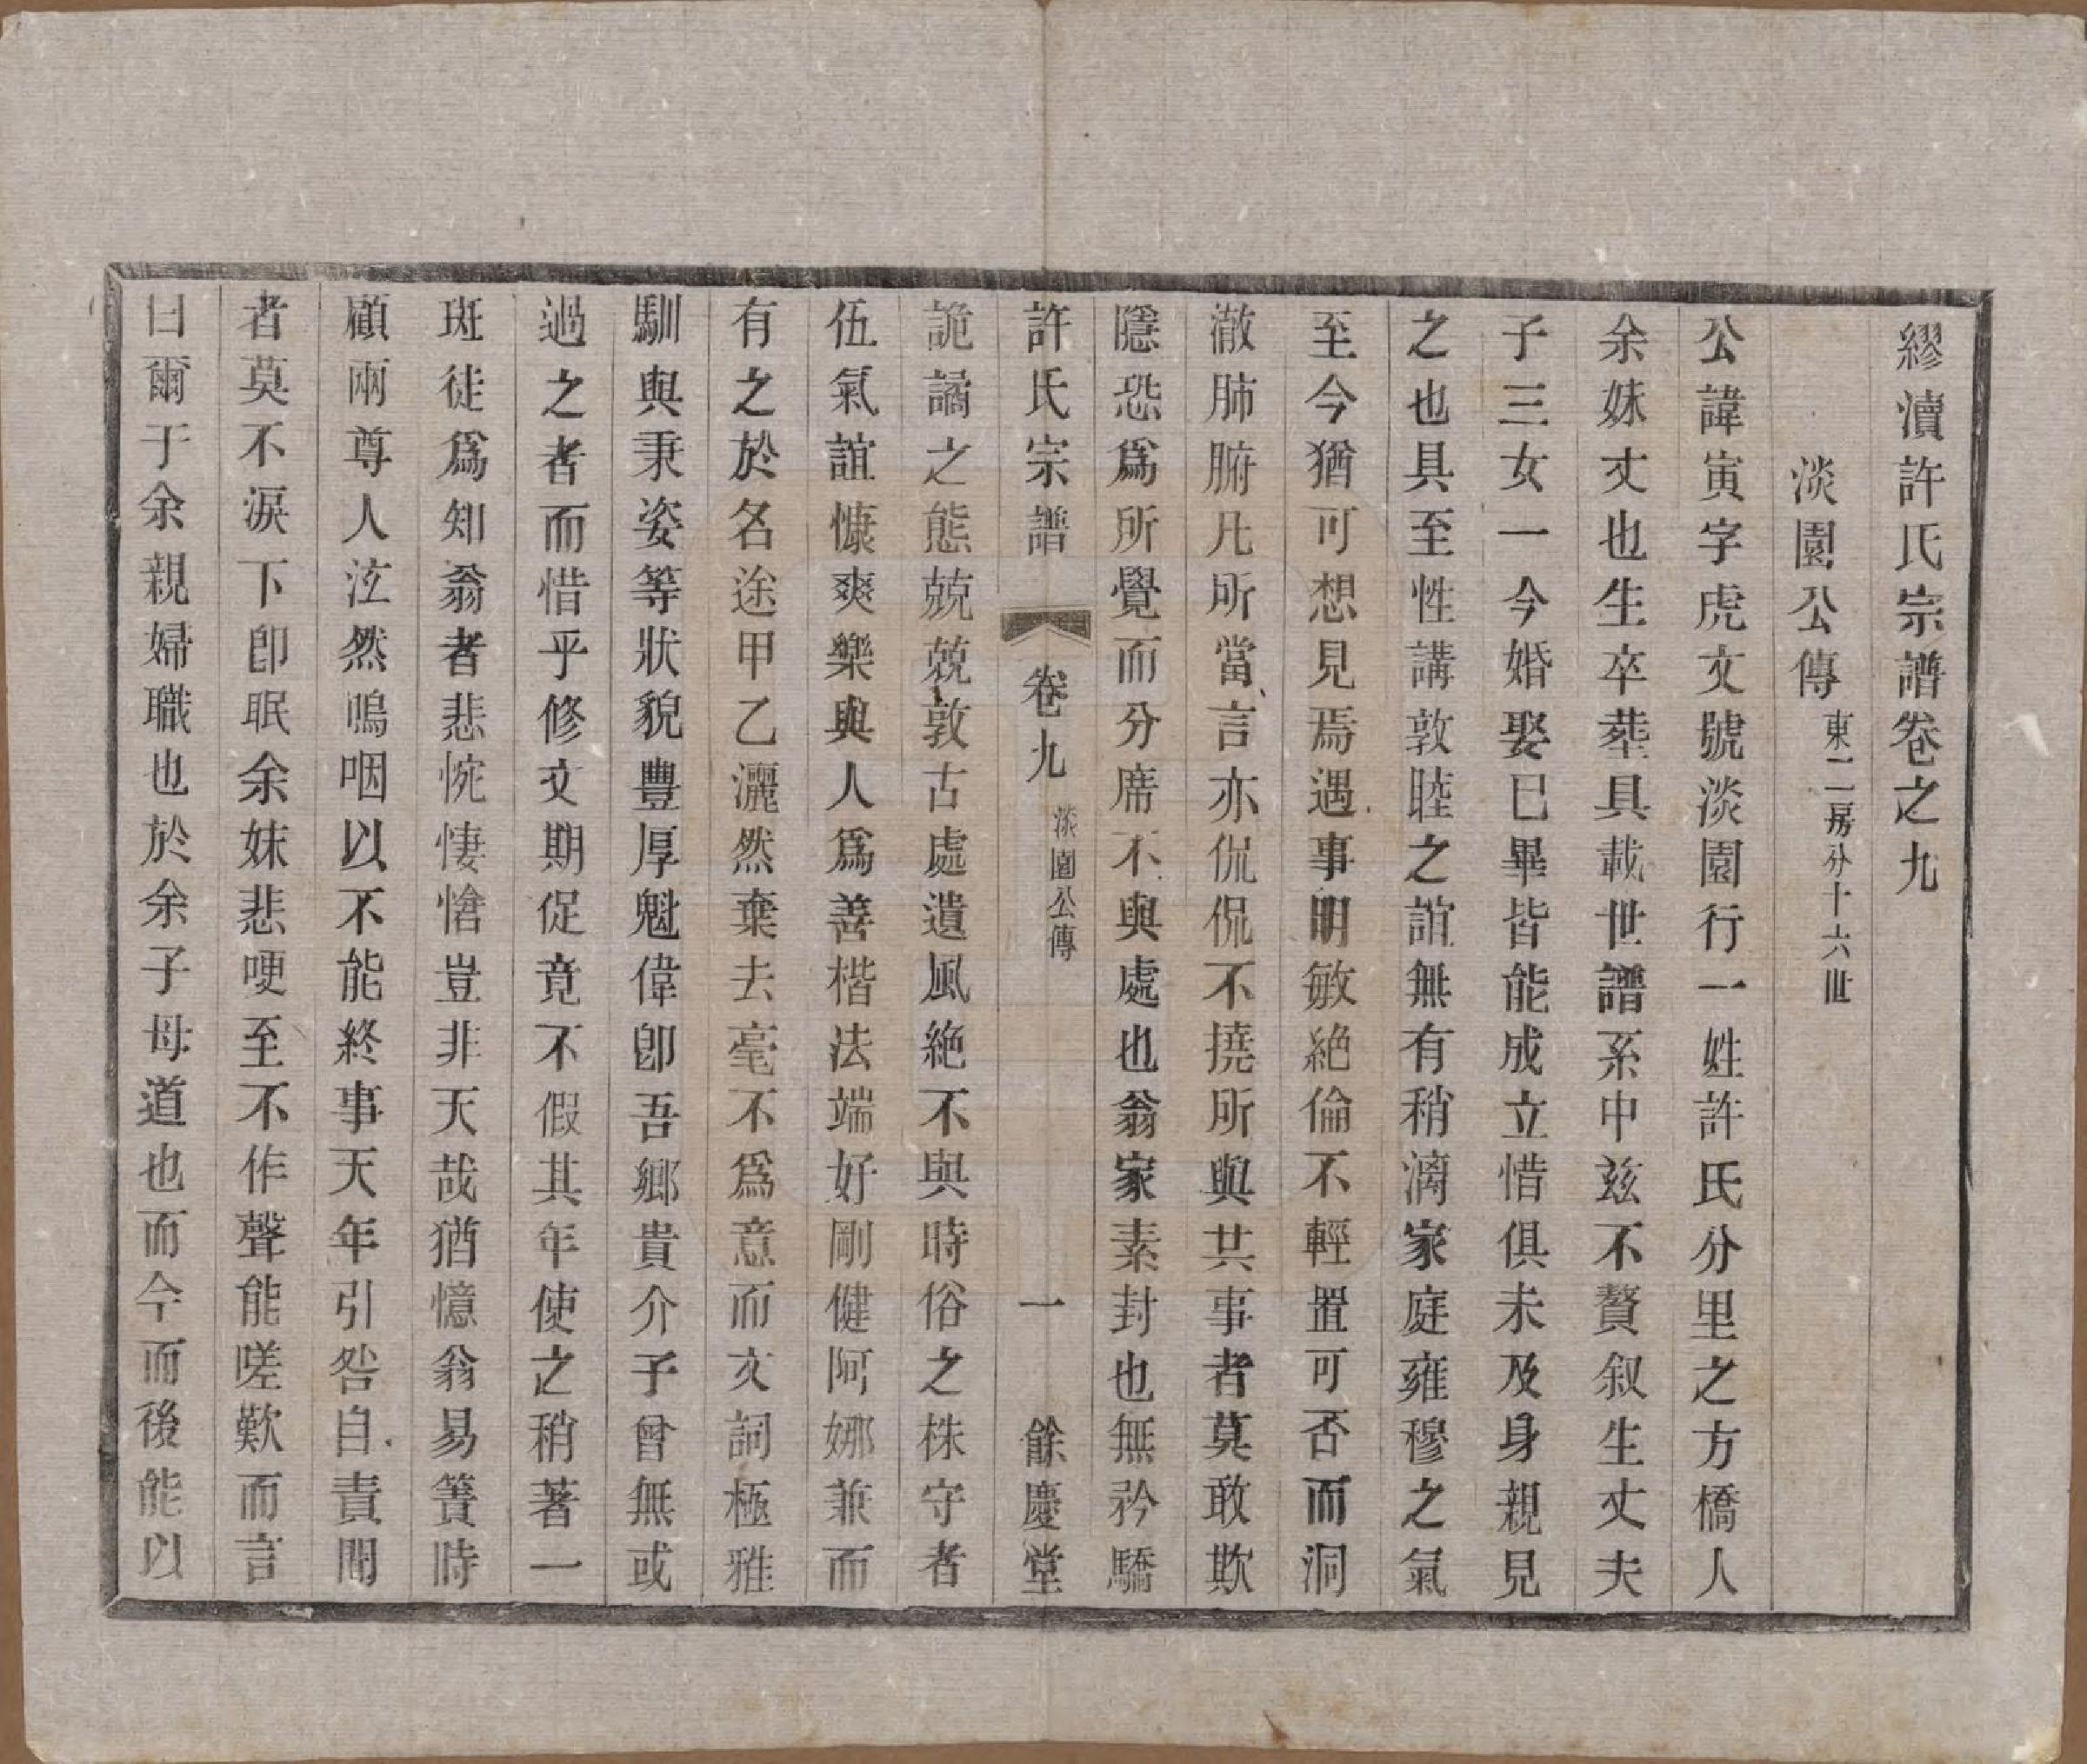 繆瀆許氏宗譜卷之九
淡園公傳東二房分十六世
公諱寅字虎文號淡園行一姓許氏分里之方橋人
余妹丈也生卒塟具載世譜系中茲不贅叙生丈夫
子三女一今婚娶巳畢皆能成立惜俱未及身親見
之也具至性講敦睦之誼無有稍漓家庭雍穆之氣
至今猶可想見焉遇事明敏絶倫不輕置可否而洞
澈肺腑凡所當言亦侃侃不撓所與共事者莫敢欺
隱恐爲所覺而分席不與處也翁家素封也無矜驕
許氏宗譜 卷九 淡園公傳 一 餘慶堂
詭譎之態兢兢敦古處遺風絶不與時俗之株守者
伍氣誼慷爽樂與人爲善楷法端好剛健阿娜兼而
有之於名途甲乙灑然棄去毫不爲意而文詞極雅
馴與秉姿等狀貌豐厚魁偉卽吾鄉貴介子曾無或
過之者而惜乎修文期促竟不假其年使之稍著一
斑徒爲知翁者悲惋悽愴豈非天哉猶憶翁易簀時
顧兩尊人泫然嗚咽以不能終事天年引咎自責聞
者莫不淚下卽眠余妹悲哽至不作聲能嗟歎而言
曰爾于余親婦職也於余子母道也而今而後能以